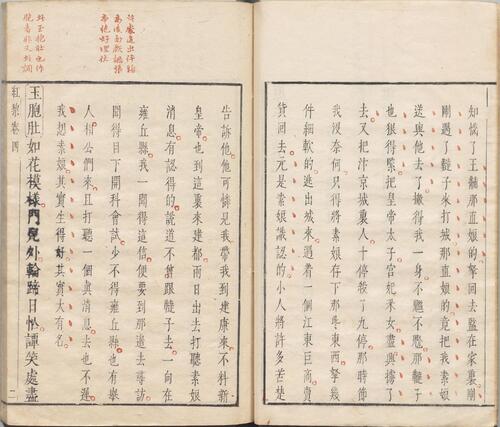 本絕好埋伏
此玉抱肚也作
胞者非又別調
知惱了王黼那直娘的拏回去監在家裏剛
剛遇了韃子來打城那直娘的竟把我素娘
送與他去了撇得我一身不尷不尬那韃子
也狠得緊把皇帝太子宮妃釆女盡興擄了
去又把汴京城裏人十停殺了九停那時節
我沒奈何只得將素娘存下那些東西拏幾
件細軟的逃出城來遇着一個江東巨商賣
貨回去元是素娘識認的小人將許多苦楚
告訴他他可憐見我帶我到建康來不料新
皇帝也到這裏來建都兩日出去打聽素娘
消息有認得的說道不曾跟韃子去一向在
雍丘縣我一聞得這信便要到那邊去尋訪
聞得目下開科會試少不得雍丘縣也有舉
人相公們來且打聽一個眞消息去也不遲
我想素娘其實生得好其實大有名
玉胞肚如花模樣門兒外輪蹄日忙譚笑處盡
紅梨卷四
二